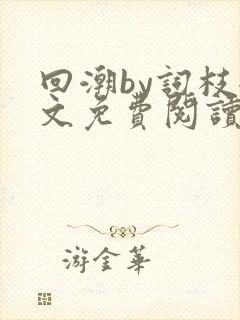 回潮by詞枝
文免費閱讀
游金華